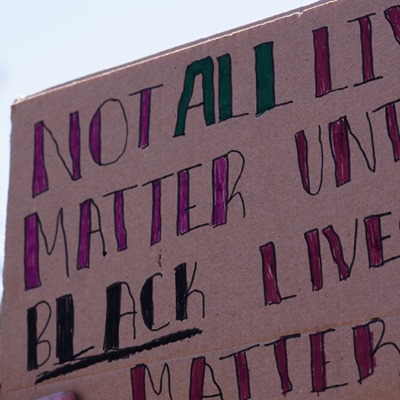 NOT ALL LIV
MATTER UNT
BLACK LIVE
MATTER